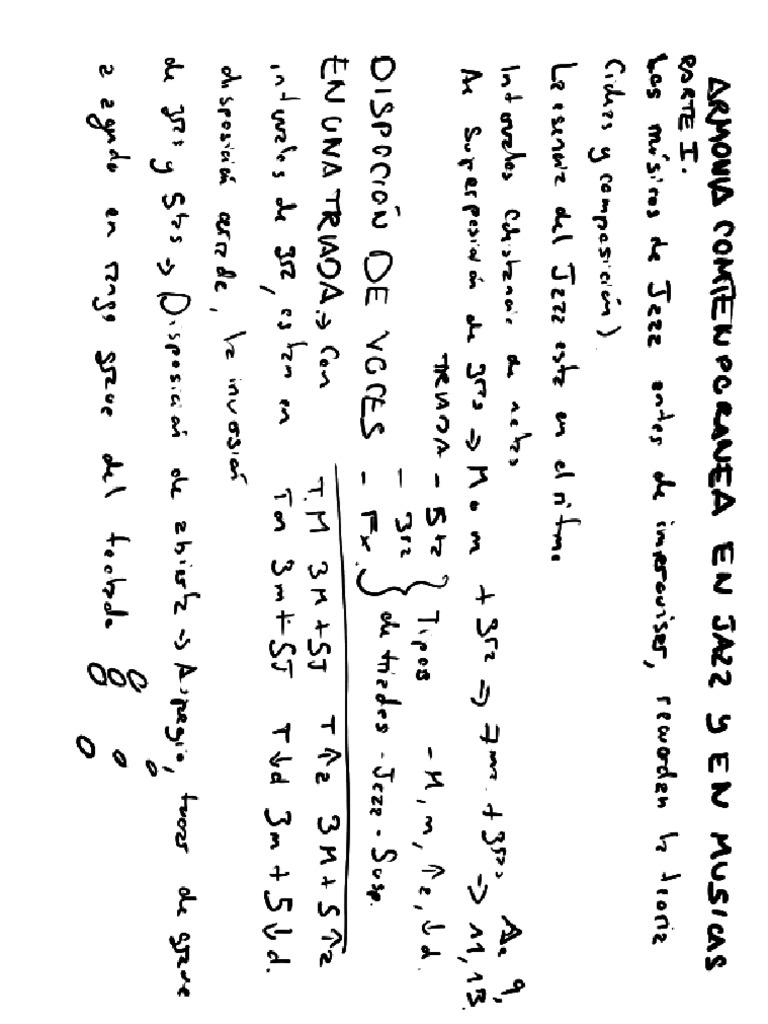 ARMONIA COMTENPORANEA EN JAZZ Y EN MUSICAS
PARTE I.
Los músicos de Jazz antes de improvisar, recuerdan la teoria
(ideas y composición).
La esencia del Jazz esta en el ritmo
Intervalos (distancia de notas
Ac Superposición de 3ras → M o m + 3ra ⇒ 7ma. + 3ras ⇒ Ac 9, 11, 13.
TRIADA - 5ta
- 3ra
- Fx.
} Tipos de triadas
- M, m, ↑a, ↓d.
- Jazz - Susp.
DISPOCIÓN DE VOCES
EN UNA TRIADA → Con
intervalos de 3ra, estan en
disposición cerrada, la inversión
T.M 3M + 5J T↑a 3M + 5↑a
Tm 3m + 5J T↓d 3m + 5↓d.
de 3ras y 5tas → Disposición de abierta → Arpegio, tocar de grave
a agudo en rango grave del teclado